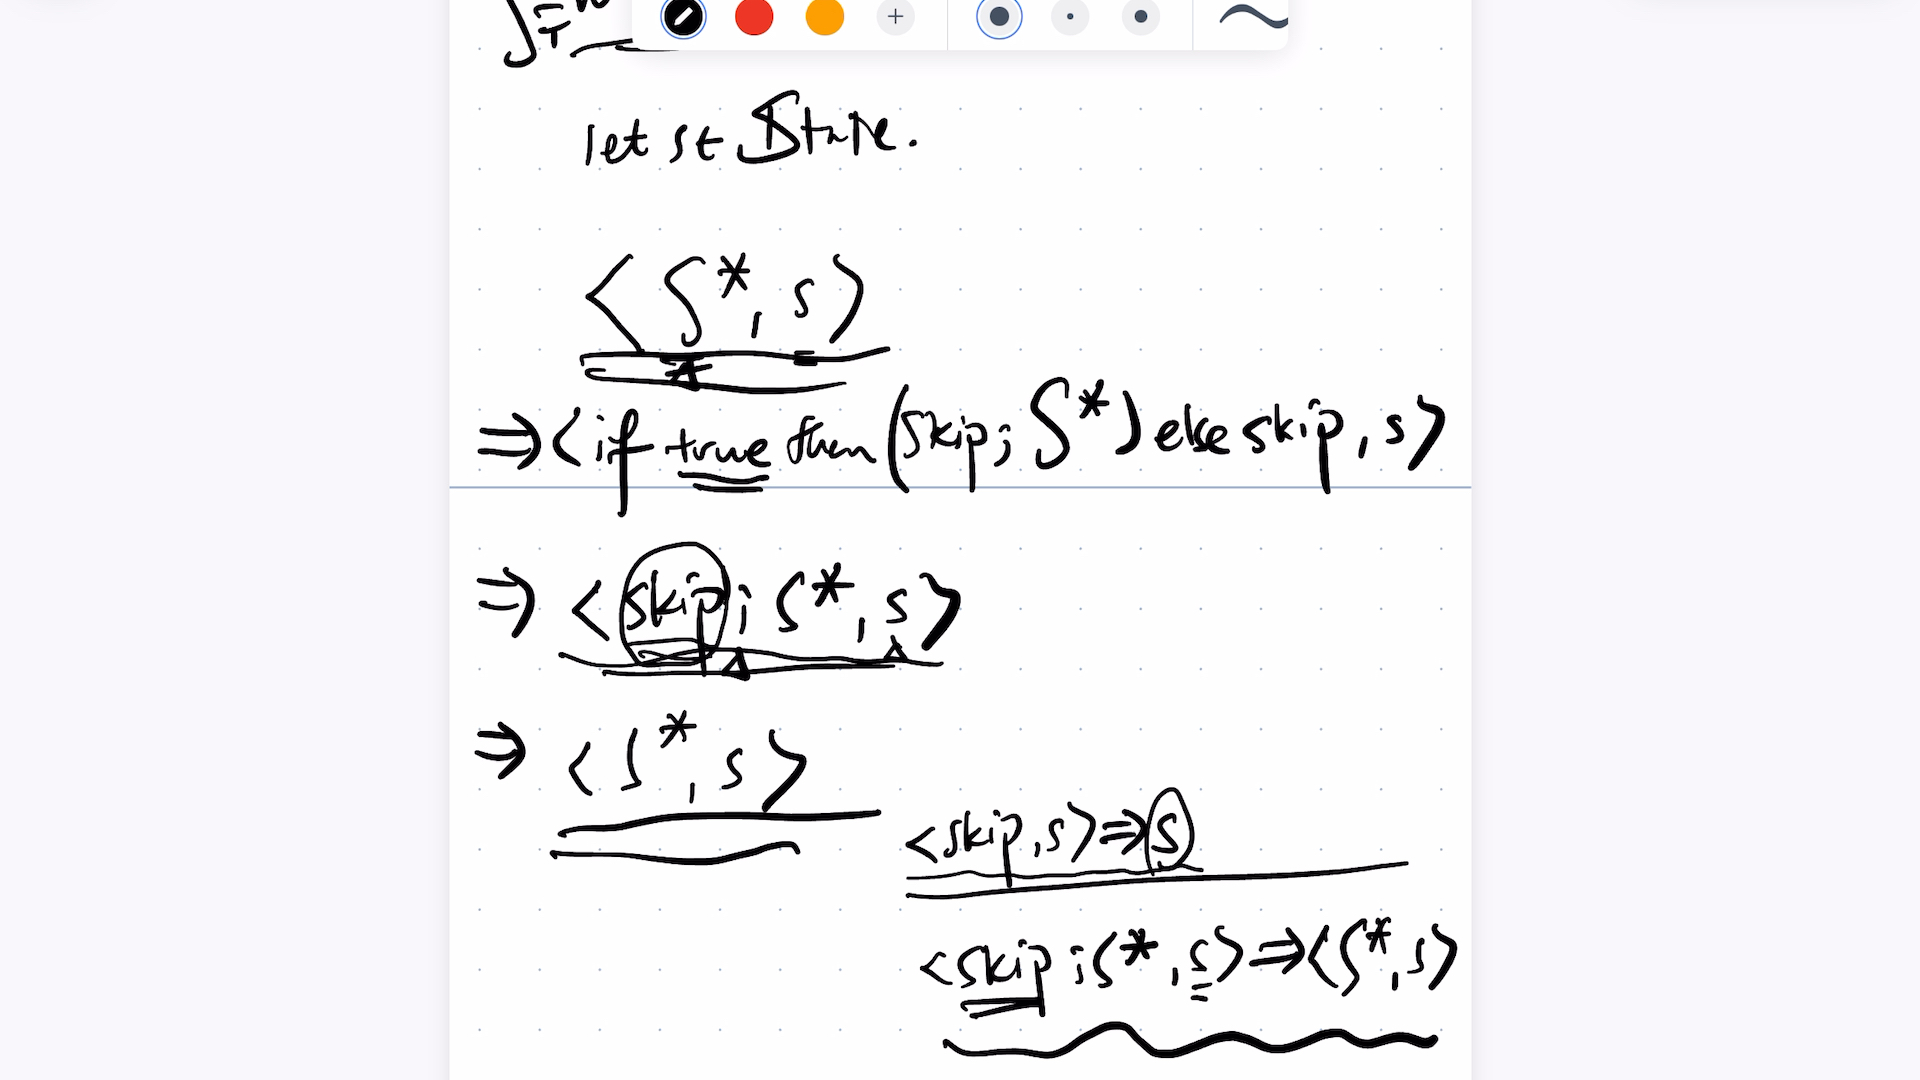 let s ∈ State.
< S*, s >
⇒ < if true then (skip; S*) else skip, s >
⇒ < skip; S*, s >
⇒ < S*, s >
< skip, s > ⇒ s
< skip; S*, s > ⇒ < S*, s >